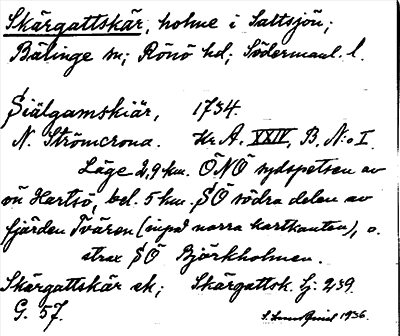 Skärgattskär, holme i Saltsjön;
Bälinge sn; Rönö hd; Södermanl. l.
Siälgamskiär, 1734.
N. Strömcrona. Kr. A. XXIV, B. N:o I.
Läge 2,9 km. ÖNÖ sydspetsen av
ön Hartsö, bel. 5 km. SÖ södra delen av
fjärden Tvären (inpå norra kartkanten), o.
strax SÖ Björkholmen.
Skärgattskär ek; Skärgattsk. lj: 239.
G. 57. 1936.